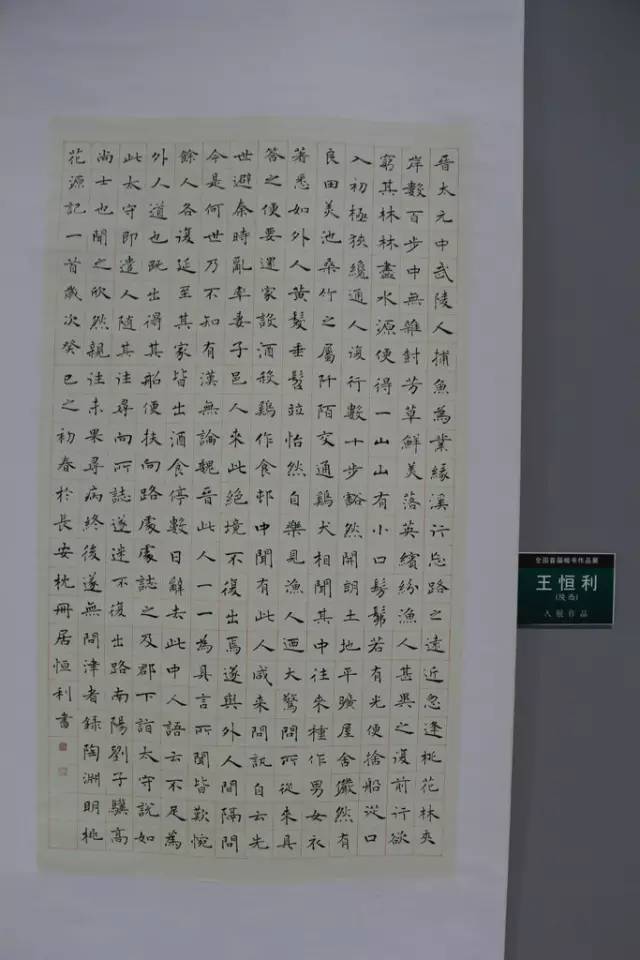 晉太元中武陵人捕魚為業緣溪行忘路之遠近忽逢桃花林夾
岸數百步中無雜封芳草鮮美落英繽紛漁人甚異之復前行欲
窮其林林盡水源便得一山山有小口髣髴若有光便捨船從口
入初極狹纔通人復行數十步豁然開朗土地平曠屋舍儼然有
良田美池桑竹之屬阡陌交通鷄犬相聞其中往來種作男女衣
著悉如外人黄髮垂髫竝怡然自樂見漁人迺大驚問所從來具
答之便要還家設酒殺鷄作食邨中聞有此人咸来問訊自云先
世避秦時亂率妻子邑人來此絕境不復出焉遂與外人間隔問
今是何世乃不知有漢無論魏晉此人一一為具言所聞皆歎惋
餘人各復延至其家皆出酒食停數日辭去此中人語云不足為
外人道也既出得其船便扶向路處處誌之及郡下詣太守說如
此太守即遣人随其往尋向所誌遂迷不復出路南陽劉子驥高
尚士也聞之欣然親往未果尋病終後遂無問津者錄陶淵明桃
花源記一首歲次癸巳之初春於長安枕冊居恒利書
全国首届楷书作品展
王恒利
(陕西)
入展作品